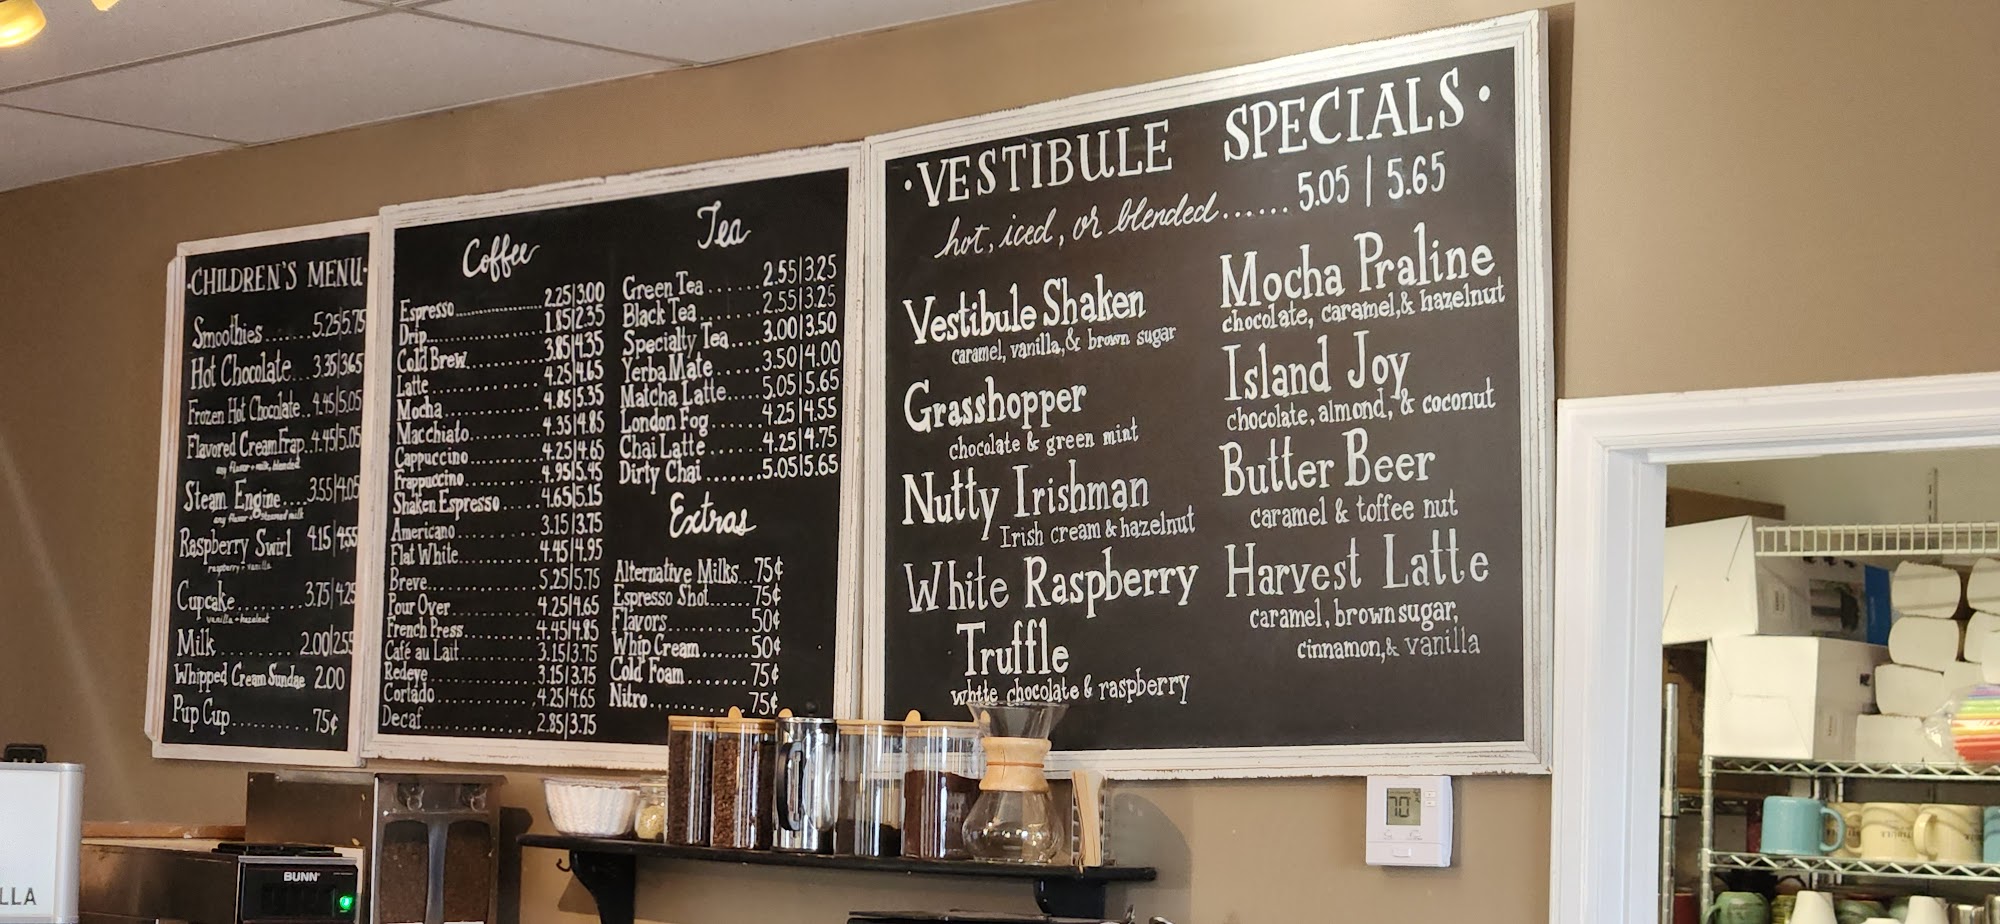 ·CHILDREN'S MENU·
Smoothies......5.25|5.75
Hot Chocolate...3.35|3.65
Frozen Hot Chocolate..4.45|5.05
Flavored Cream Frap..4.45|5.05
any flavor + milk, blended
Steam Engine....3.55|4.05
any flavor + steamed milk
Raspberry Swirl 4.15|4.55
raspberry + vanilla
Cupcake........3.75|4.25
vanilla + hazelnut
Milk..........2.00|2.55
Whipped Cream Sundae 2.00
Pup Cup..........75¢
Coffee
Espresso..................2.25|3.00
Drip......................1.85|2.35
Cold Brew.................3.85|4.35
Latte.....................4.25|4.65
Mocha.....................4.85|5.35
Macchiato.................4.35|4.85
Cappuccino................4.25|4.65
Frappuccino...............4.95|5.45
Shaken Espresso......4.65|5.15
Americano.................3.15|3.75
Flat White................4.45|4.95
Breve.....................5.25|5.75
Pour Over.................4.25|4.65
French Press..............4.45|4.85
Café au Lait..............3.15|3.75
Redeye....................3.15|3.75
Cortado...................4.25|4.65
Decaf.....................2.85|3.75
Tea
Green Tea.......2.55|3.25
Black Tea.......2.55|3.25
Specialty Tea....3.00|3.50
Yerba Mate......3.50|4.00
Matcha Latte.....5.05|5.65
London Fog.......4.25|4.55
Chai Latte.......4.25|4.75
Dirty Chai........5.05|5.65
Extras
Alternative Milks...75¢
Espresso Shot......75¢
Flavors............50¢
Whip Cream.......50¢
Cold Foam........75¢
Nitro.............75¢
·VESTIBULE SPECIALS·
hot, iced, or blended......5.05 | 5.65
Vestibule Shaken
caramel, vanilla, & brown sugar
Grasshopper
chocolate & green mint
Nutty Irishman
Irish cream & hazelnut
White Raspberry
Truffle
white chocolate & raspberry
Mocha Praline
chocolate, caramel, & hazelnut
Island Joy
chocolate, almond, & coconut
Butter Beer
caramel & toffee nut
Harvest Latte
caramel, brown sugar,
cinnamon, & vanilla
70
BUNN
LLA